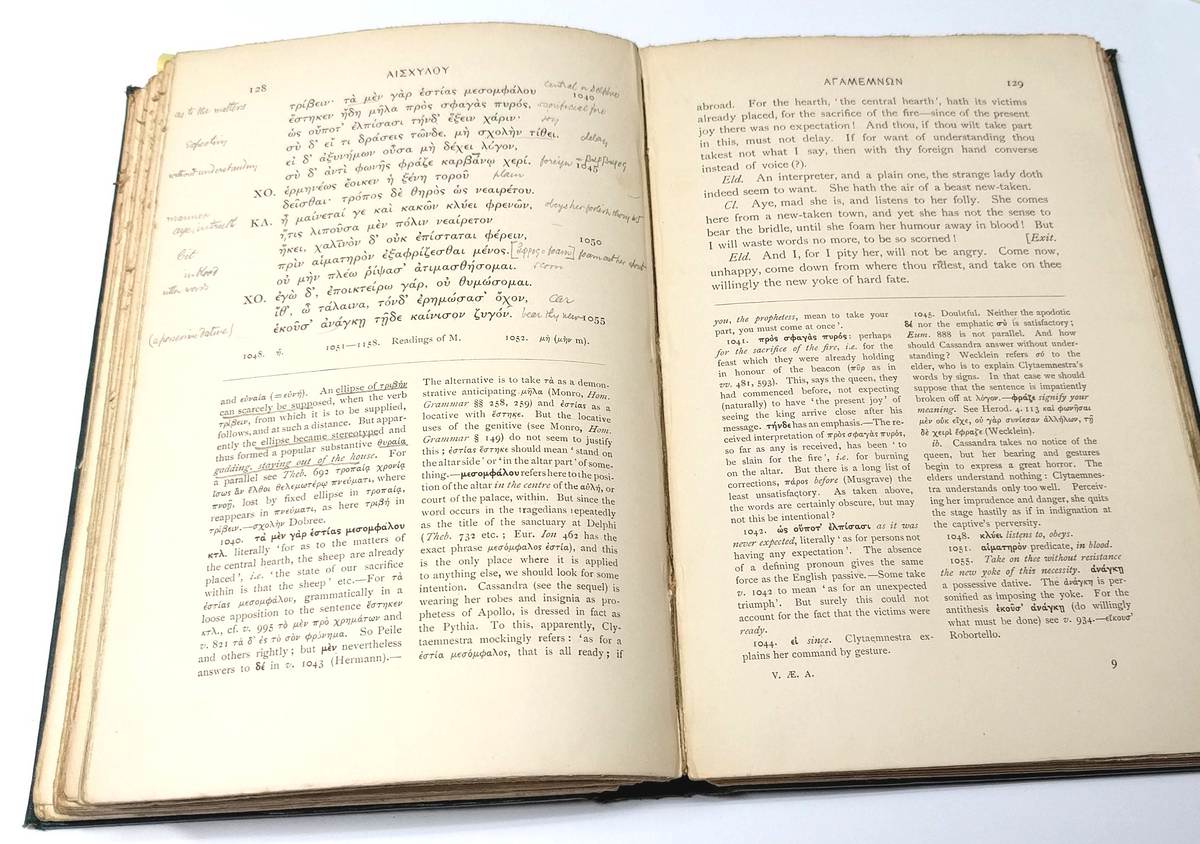 128
ΑΙΣΧΥΛΟΥ
as to the matters
τρίβειν· τὰ μὲν γὰρ ἑστίας μεσομφάλου
central
1040
ἕστηκεν ἤδη μῆλα πρὸς σφαγὰς πυρός,
sacrificial fire
ὡς οὔποτ' ἐλπίσασι τήνδ' ἕξειν χάριν·
joy
σὺ δ' εἴ τι δράσεις τῶνδε, μὴ σχολὴν τίθει.
delay
εἰ δ' ἀξυνήμων οὖσα μὴ δέχει λόγον,
without understanding
σὺ δ' ἀντὶ φωνῆς φράζε καρβάνῳ χερί.
foreign
1045
ΧΟ. ἑρμηνέως ἔοικεν ἡ ξένη τοροῦ
plain
δεῖσθαι· τρόπος δὲ θηρὸς ὡς νεαιρέτου.
manner
ΚΛ. ἦ μαίνεταί γε καὶ κακῶν κλύει φρενῶν,
ἥτις λιποῦσα μὲν πόλιν νεαίρετον
ἥκει, χαλινὸν δ' οὐκ ἐπίσταται φέρειν,
1050
bit
πρὶν αἱματηρὸν ἐξαφρίζεσθαι μένος.
in blood
[ἀφρος = foam] foam out her
οὐ μὴν πλέω ῥίψασ' ἀτιμασθήσομαι.
utter words
scorn
ΧΟ. ἐγὼ δ', ἐποικτείρω γάρ, οὐ θυμώσομαι.
ἴθ', ὦ τάλαινα, τόνδ' ἐρημώσασ' ὄχον,
car
ἑκοῦσ' ἀνάγκῃ τῇδε καίνισον ζυγόν.
bear thy new
1055
(a possessive dative)
1048. ἡ. 1051—1158. Readings of M. 1052. μὴ (μὴν m).
and εὐναία (=εὐνή). An ellipse of τριβὴν
can scarcely be supposed, when the verb
τρίβειν, from which it is to be supplied,
follows, and at such a distance. But appar-
ently the ellipse became stereotyped and
thus formed a popular substantive θυραία
gadding, staying out of the house. For
a parallel see Theb. 692 τροπαίᾳ χρονίᾳ
ἴσως ἂν ἔλθοι θελεμωτέρῳ πνεύματι, where
πνοῇ, lost by fixed ellipse in τροπαίᾳ,
reappears in πνεύματι, as here τριβὴν in
τρίβειν.—σχολὴν Dobree.
1040. τὰ μὲν γὰρ ἑστίας μεσομφάλου
κτλ. literally 'for as to the matters of
the central hearth, the sheep are already
placed', i.e. 'the state of our sacrifice
within is that the sheep' etc.—For τὰ
ἑστίας μεσομφάλου, grammatically in a
loose apposition to the sentence ἕστηκεν
κτλ., cf. v. 995 τὸ μὲν πρὸ χρημάτων and
v. 821 τὰ δ' ἐς τὸ σὸν φρόνημα. So Peile
and others rightly; but μὲν nevertheless
answers to δέ in v. 1043 (Hermann).—
The alternative is to take τὰ as a demon-
strative anticipating μῆλα (Monro, Hom.
Grammar §§ 258, 259) and ἑστίας as a
locative with ἕστηκε. But the locative
uses of the genitive (see Monro, Hom.
Grammar § 149) do not seem to justify
this; ἑστίας ἕστηκε should mean 'stand on
the altar side' or 'in the altar part' of some-
thing.—μεσομφάλου refers here to the posi-
tion of the altar in the centre of the αὐλή, or
court of the palace, within. But since the
word occurs in the tragedians repeatedly
as the title of the sanctuary at Delphi
(Theb. 732 etc.; Eur. Ion 462 has the
exact phrase μεσόμφαλος ἑστία), and this
is the only place where it is applied
to anything else, we should look for some
intention. Cassandra (see the sequel) is
wearing her robes and insignia as pro-
phetess of Apollo, is dressed in fact as
the Pythia. To this, apparently, Cly-
taemnestra mockingly refers: 'as for a
ἑστία μεσόμφαλος, that is all ready; if
ΑΓΑΜΕΜΝΩΝ
129
abroad. For the hearth, 'the central hearth', hath its victims
already placed, for the sacrifice of the fire—since of the present
joy there was no expectation! And thou, if thou wilt take part
in this, must not delay. If for want of understanding thou
takest not what I say, then with thy foreign hand converse
instead of voice (?).
Eld. An interpreter, and a plain one, the strange lady doth
indeed seem to want. She hath the air of a beast new-taken.
Cl. Aye, mad she is, and listens to her folly. She comes
here from a new-taken town, and yet she has not the sense to
bear the bridle, until she foam her humour away in blood! But
I will waste words no more, to be so scorned! [Exit.
Eld. And I, for I pity her, will not be angry. Come now,
unhappy, come down from where thou ridest, and take on thee
willingly the new yoke of hard fate.
you, the prophetess, mean to take your
part, you must come at once'.
1041. πρὸς σφαγὰς πυρός: perhaps
for the sacrifice of the fire, i.e. for the
feast which they were already holding
in honour of the beacon (πῦρ as in
vv. 481, 593). This, says the queen, they
had commenced before, not expecting
(naturally) to have 'the present joy' of
seeing the king arrive close after his
message. τήνδε has an emphasis.—The re-
ceived interpretation of πρὸς σφαγὰς πυρός,
so far as any is received, has been 'to
be slain for the fire', i.e. for burning
on the altar. But there is a long list of
corrections, πάρος before (Musgrave) the
least unsatisfactory. As taken above,
the words are certainly obscure, but may
not this be intentional?
1042. ὡς οὔποτ' ἐλπίσασι as it was
never expected, literally 'as for persons not
having any expectation'. The absence
of a defining pronoun gives the same
force as the English passive.—Some take
v. 1042 to mean 'as for an unexpected
triumph'. But surely this could not
account for the fact that the victims were
ready.
1044. εἰ since. Clytaemnestra ex-
plains her command by gesture.
1045. Doubtful. Neither the apodotic
δέ nor the emphatic σὺ is satisfactory;
Eum. 888 is not parallel. And how
should Cassandra answer without under-
standing? Wecklein refers σύ to the
elder, who is to explain Clytaemnestra's
words by signs. In that case we should
suppose that the sentence is impatiently
broken off at λόγον.—φράζε signify your
meaning. See Herod. 4. 113 καὶ φωνῆσαι
μὲν οὐκ εἶχε, οὐ γὰρ συνίεσαν ἀλλήλων, τῇ
δὲ χειρὶ ἔφραζε (Wecklein).
ib. Cassandra takes no notice of the
queen, but her bearing and gestures
begin to express a great horror. The
elders understand nothing: Clytaemnes-
tra understands only too well. Perceiv-
ing her imprudence and danger, she quits
the stage hastily as if in indignation at
the captive's perversity.
1048. κλύει listens to, obeys.
1051. αἱματηρὸν predicate, in blood.
1055. Take on thee without resistance
the new yoke of this necessity. ἀνάγκῃ
a possessive dative. The ἀνάγκη is per-
sonified as imposing the yoke. For the
antithesis ἑκοῦσ' ἀνάγκῃ (do willingly
what must be done) see v. 934.—εἴκουσ'
Robortello.
V. Æ. A.
9